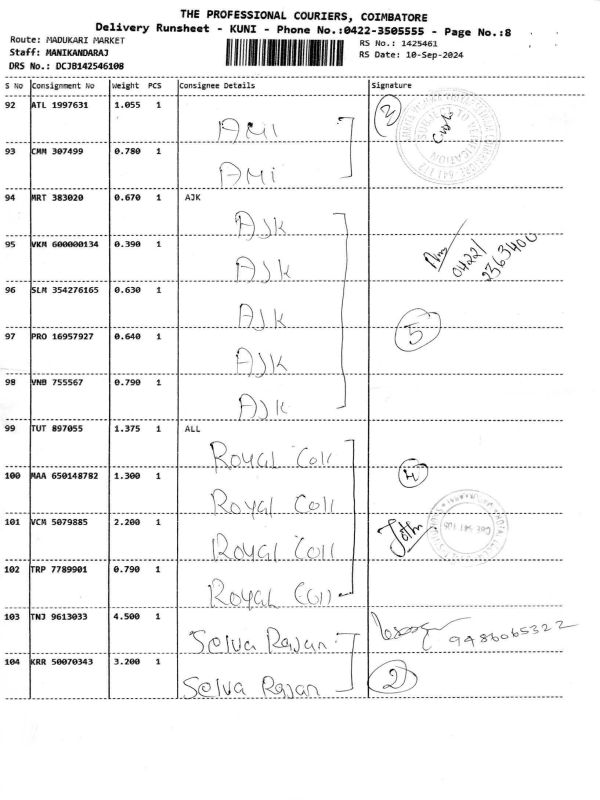 THE PROFESSIONAL COURIERS, COIMBATORE
Delivery Runsheet - KUNI - Phone No.:0422-3505555 - Page No.:8
Route: MADUKARI MARKET
RS No.: 1425461
Staff: MANIKANDARAJ
RS Date: 10-Sep-2024
DRS No.: DCJB142546108
S No Consignment No Weight PCS Consignee Details Signature
92 ATL 1997631 1.055 1
AMI
2
93 CMM 307499 0.780 1
AMI
94 MRT 383020 0.670 1 AJK
AJK
95 VKM 600000134 0.390 1
AJK
04221
2363400
96 SLM 354276165 0.630 1
AJK
5
97 PRO 16957927 0.640 1
AJK
98 VNB 755567 0.790 1
AJK
99 TUT 897055 1.375 1 ALL
Royal Coll
100 MAA 650148782 1.300 1
4
Royal Coll
101 VCM 5079885 2.200 1
Royal Coll
102 TRP 7789901 0.790 1
Royal Coll
103 TNJ 9613033 4.500 1
Selva Rajan
9486065322
104 KRR 50070343 3.200 1
Selva Rajan
2